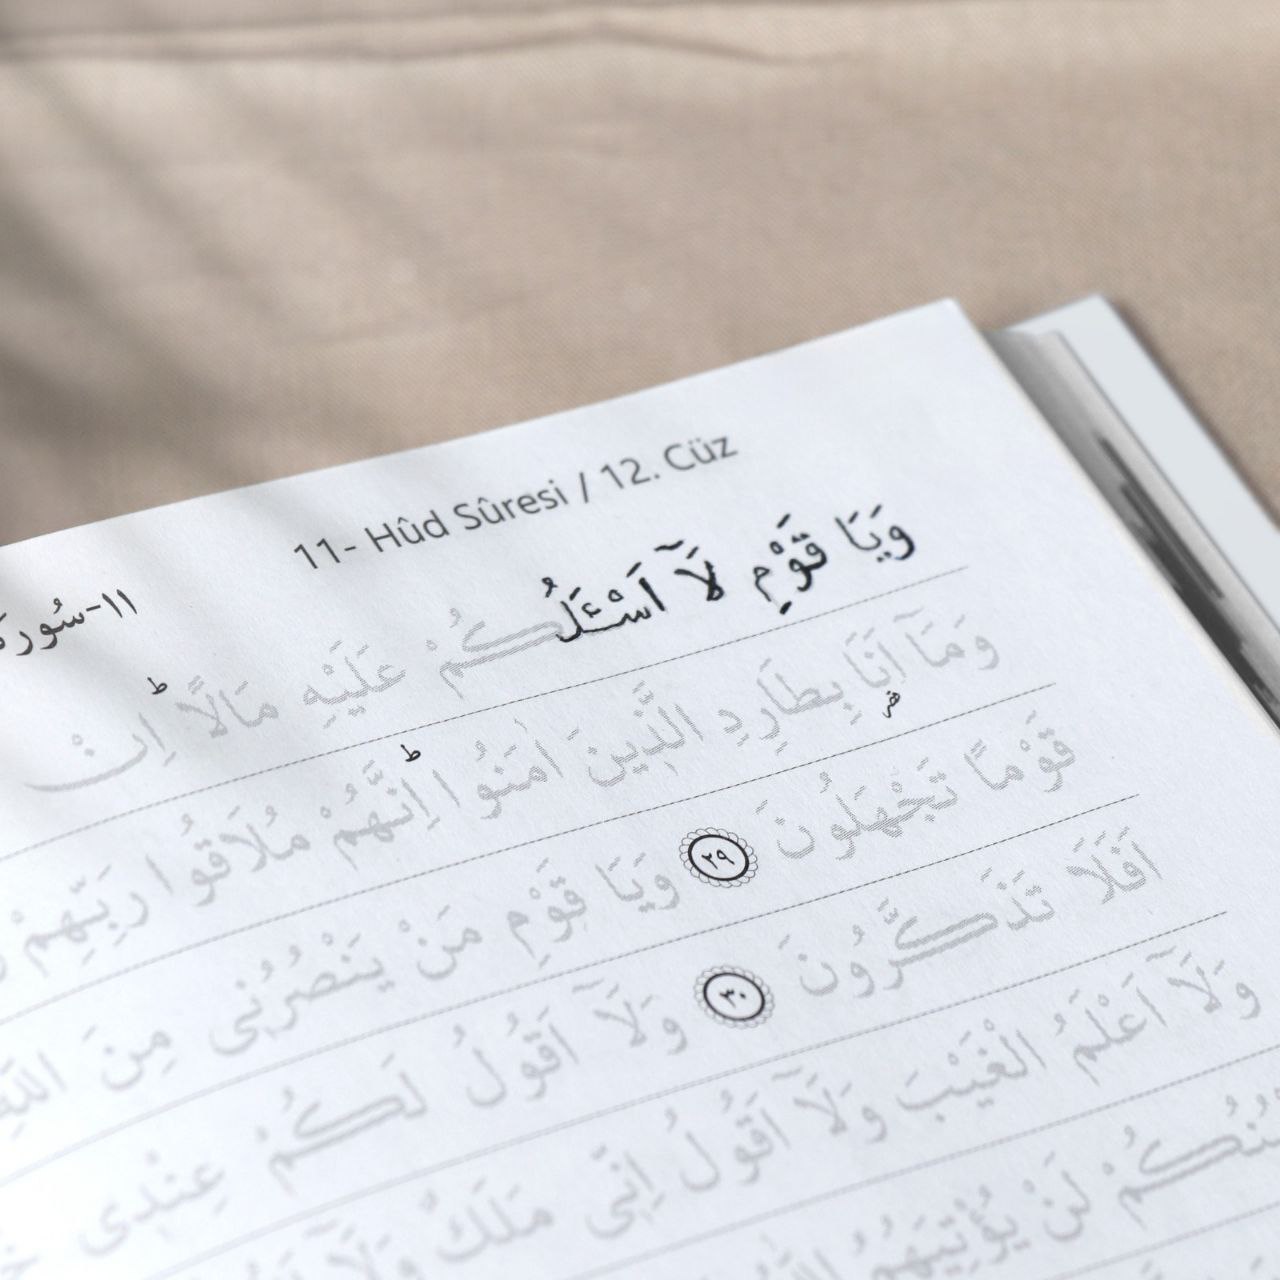 11- Hûd Sûresi / 12. Cüz
١١-سُورة
وَيَا قَوْمِ لَآ اَسْـَٔلُكُمْ عَلَيْهِ مَالًا ط اِنْ
وَمَآ اَنَا۬ بِطَارِدِ الَّذ۪ينَ اٰمَنُوا ط اِنَّهُمْ مُلَاقُوا رَبِّهِمْ
قَوْمًا تَجْهَلُونَ ٢٩ وَيَا قَوْمِ مَنْ يَنْصُرُن۪ى مِنَ اللّٰهِ
اَفَلَا تَذَكَّرُونَ ٣٠ وَلَآ اَقُولُ لَكُمْ عِنْد۪ى
وَلَآ اَعْلَمُ الْغَيْبَ وَلَآ اَقُولُ اِنّ۪ى مَلَكٌ وَلَآ
لَنْ يُؤْتِيَهُمُ